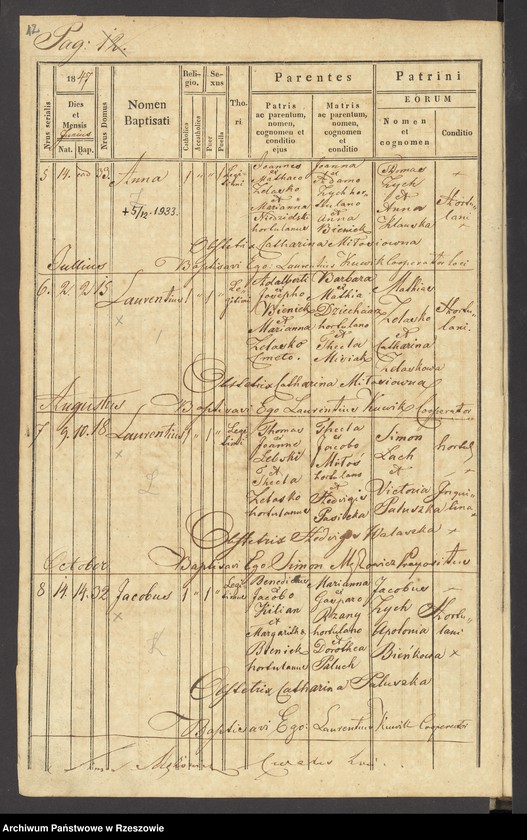 12
Pag: 12.
Nrus serialis
1847
Dies
et
Mensis
Junius
Nat. Bap.
Nrus Domus
Nomen
Baptisati
Religio.
Catholica
Acatholica
Sexus
Puer
Puella
Thori
Parentes
Patris
ac parentum,
nomen,
cognomen et
conditio
ejus
Matris
ac parentum,
nomen,
cognomen et
conditio
Patrini
EORUM
Nomen
et
cognomen
Conditio
5 14. 32 Anna 1 " " 1 Legitimi
+ 5/12. 1933.
Joannes
et
Zelasko
et
Marianna
hortulanus
Joanna
et
Adamo
Zych hor
tulano
et
Anna
Bieniek
Thomas
Zych
et
Anna
Hortulani
Obstetrix Catharina Miłosiowna
Baptisavi Ego Laurentius Kuwik Cooperator loci
Jullius
6. 2. 2. 15 Laurentius 1 " 1 " Legitimi
Adalberti
et
Josepho
Bieniek
et
Marianna
Zelasko
Cmeto.
Barbara
et
Mathia
hortulano
et
Thecla
Misiak
Mathias
Zelasko
et
Catharina
Zelaskowa
Hortulani.
Obstetrix Catharina Miłosiowna
Baptisavi Ego Laurentius Kuwik Cooperator
Augustus
7 9. 10. 18 Laurentius 1 " 1 " Legitimi
L
Thomas
et
Joanne
et
Thecla
Zelasko
hortulanus
Thecla
et
Jacobo
Miłoś
hortulano
et
Hedvigis
Pasieka
Simon
Lach
et
Victoria
Paluszka
hortul
Inquilina
Obstetrix Hedvigis Walaszka
Baptisavi Ego Simon Praepositus
October
8 14. 14. 32 Jacobus 1 " 1 " Legitimus
K
Benedictus
et
Jacobo
Kilian
et
Margaritha
Bieniek
hortulanus
Marianna
et
Gasparo
Rzany
hortulano
et
Dorothea
Paluch
Jacobus
Zych
et
Apolonia
Bieńkowa
Hortulani
Obstetrix Catharina Paluszka
Baptisavi Ego Laurentius Kuwik Cooperator
Curatus
Archiwum Państwowe w Rzeszowie